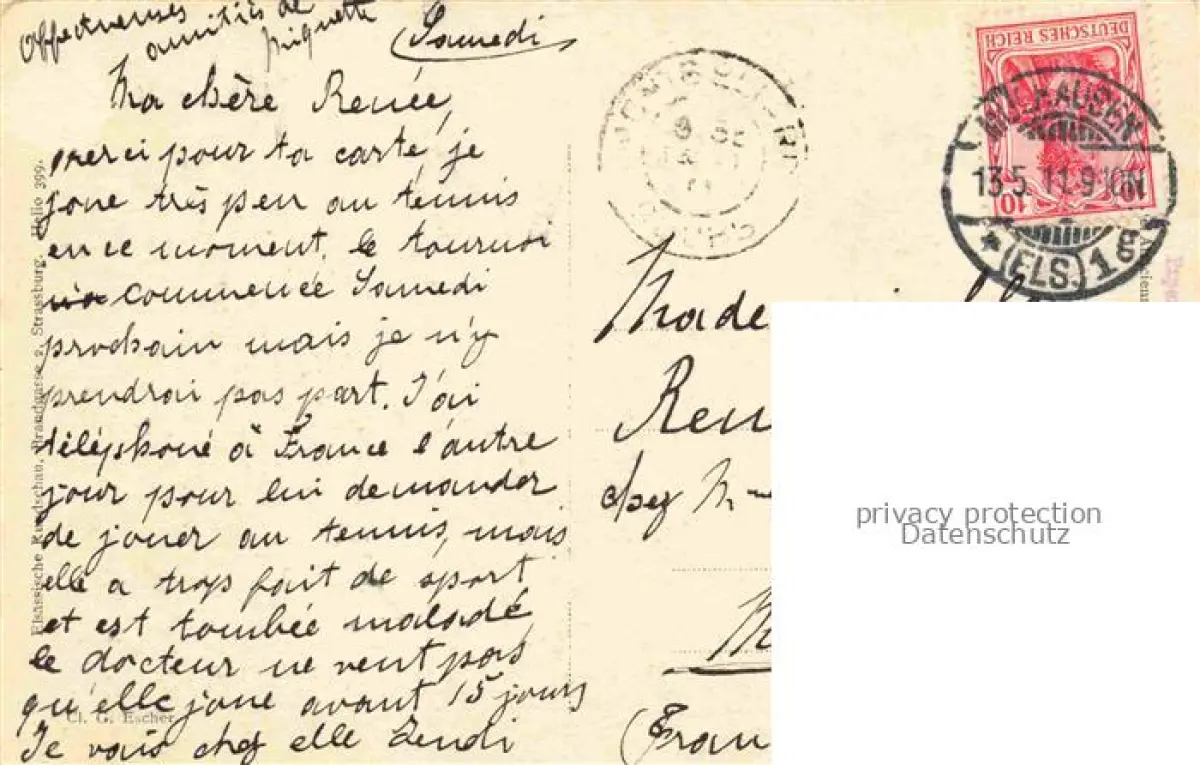 Affectueuses
amitiés de
Piquette
Samedi
Ma chère Renée,
merci pour ta carte, je
joue très peu au tennis
en ce moment. le tournoi
commencée Samedi
prochain mais je n'y
prendrai pas part. J'ai
téléphoné à France l'autre
jour pour lui demander
de jouer au tennis, mais
elle a trop fait de sport
et est tombée malade,
le docteur ne veut pas
qu'elle joue avant 15 jours
Je vais chez elle Lundi
Elsässische Rundschau, Brandgasse 8, Strassburg. Helio 399.
Cl. G. Escher
DEUTSCHES REICH
10
10
MÜLHAUSEN
13.5.11.9-10N
* (ELS.) 1g
Made
Ren
chez Mme
M
(Fran
privacy protection
Datenschutz